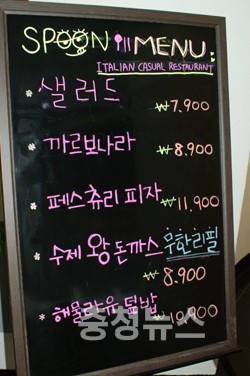 SPOON이 MENU
ITALIAN CASUAL RESTAURANT
* 샐러드 ₩7.900
* 까르보나라 ₩8.900
* 페스츄리 피자 ₩11.900
* 수제 왕돈까스 무한리필 ₩8.900
* 해물라유덮밥 ₩10.900
충청뉴스